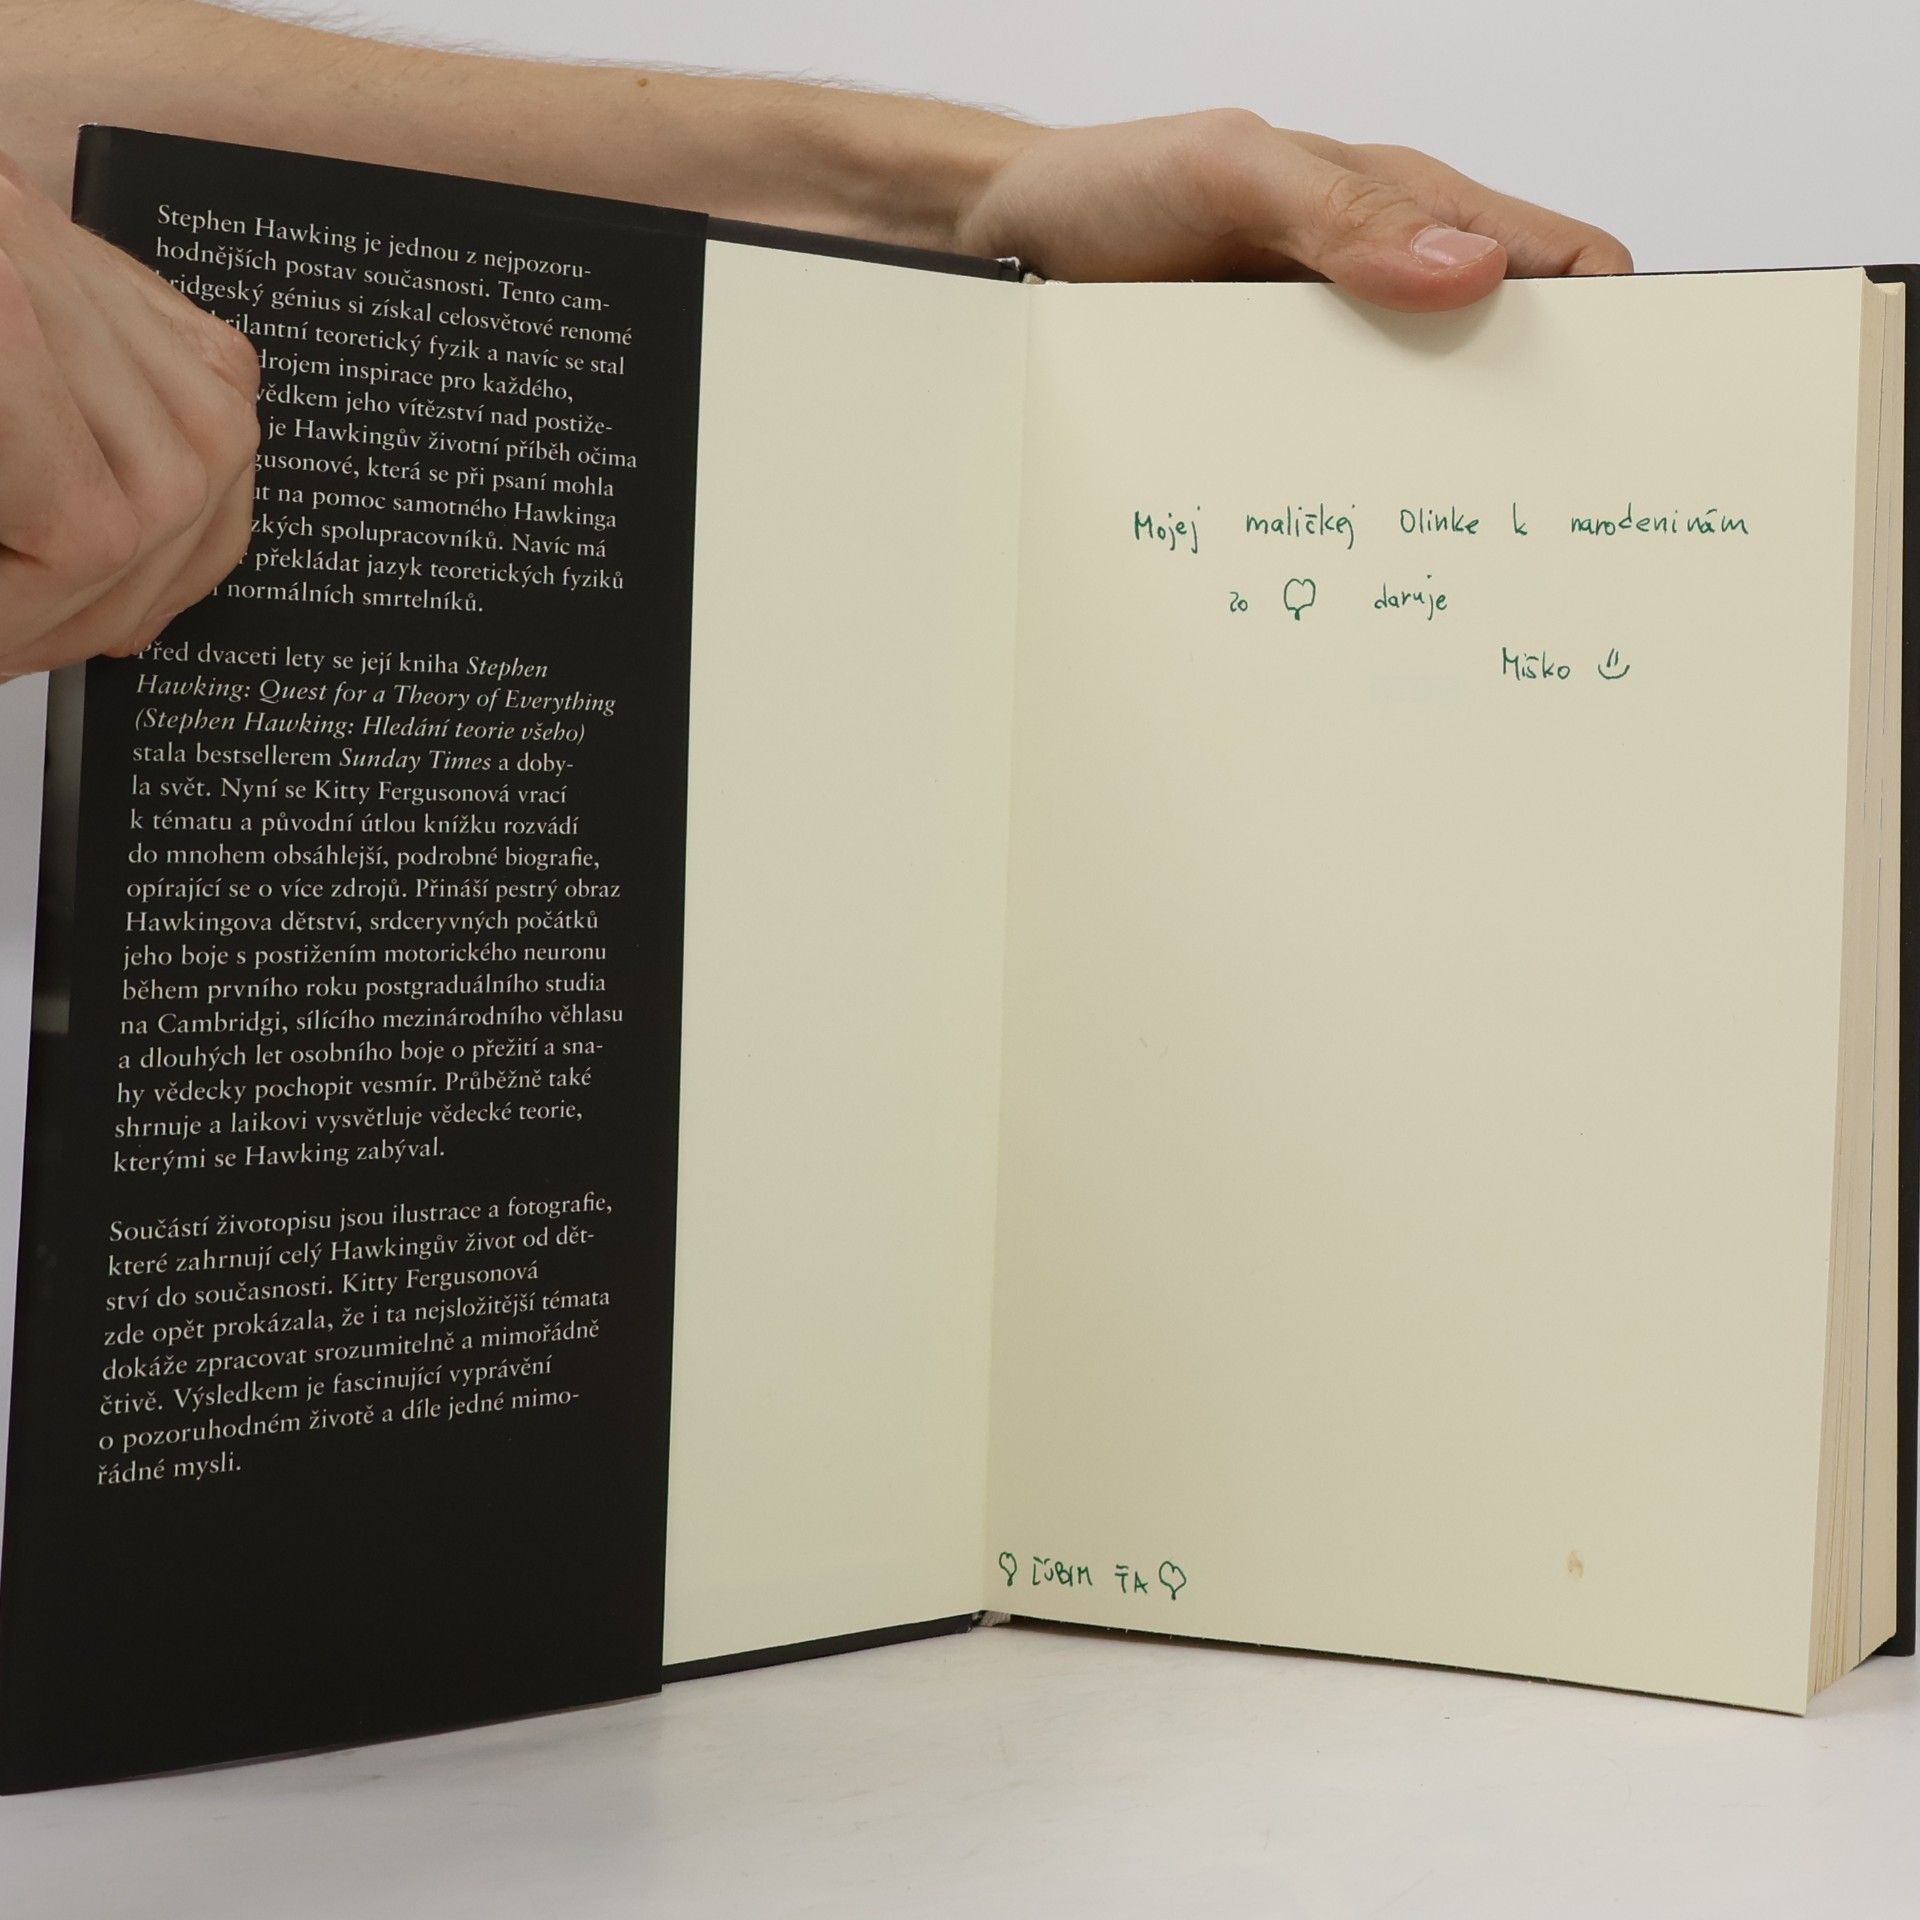 Stephen Hawking je jednou z nejpozoru-
hodnějších postav současnosti. Tento cam-
bridgeský génius si získal celosvětové renomé
brilantní teoretický fyzik a navíc se stal
zdrojem inspirace pro každého,
svědkem jeho vítězství nad postiže-
je Hawkingův životní příběh očima
Fergusonové, která se při psaní mohla
na pomoc samotného Hawkinga
blízkých spolupracovníků. Navíc má
překládat jazyk teoretických fyziků
normálních smrtelníků.
Před dvaceti lety se její kniha Stephen
Hawking: Quest for a Theory of Everything
(Stephen Hawking: Hledání teorie všeho)
stala bestsellerem Sunday Times a doby-
la svět. Nyní se Kitty Fergusonová vrací
k tématu a původní útlou knížku rozvádí
do mnohem obsáhlejší, podrobné biografie,
opírající se o více zdrojů. Přináší pestrý obraz
Hawkingova dětství, srdceryvných počátků
jeho boje s postižením motorického neuronu
během prvního roku postgraduálního studia
na Cambridgi, sílícího mezinárodního věhlasu
a dlouhých let osobního boje o přežití a sna-
hy vědecky pochopit vesmír. Průběžně také
shrnuje a laikovi vysvětluje vědecké teorie,
kterými se Hawking zabýval.
Součástí životopisu jsou ilustrace a fotografie,
které zahrnují celý Hawkingův život od dět-
ství do současnosti. Kitty Fergusonová
zde opět prokázala, že i ta nejsložitější témata
dokáže zpracovat srozumitelně a mimořádně
čtivě. Výsledkem je fascinující vyprávění
o pozoruhodném životě a díle jedné mimo-
řádné mysli.
Mojej maličkej Olinke k narodeninám
zo ♡ daruje
Miško
ĽÚBIM ŤA